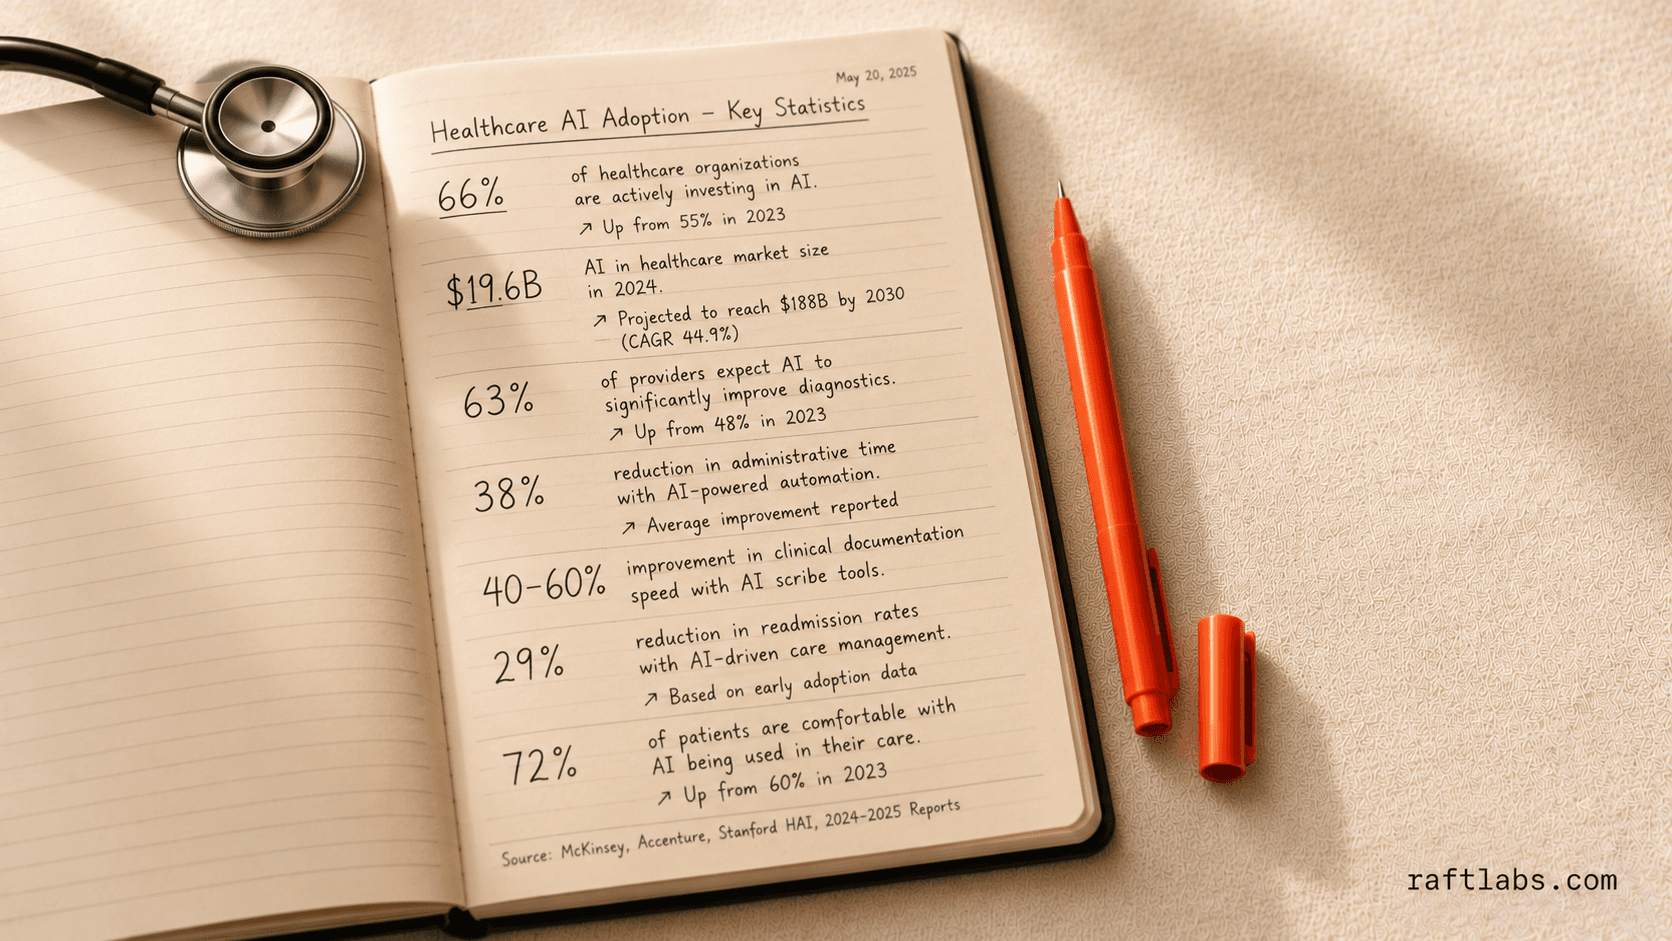 May 20, 2025
Healthcare AI Adoption – Key Statistics
66%
of healthcare organizations
are actively investing in AI.
↗ Up from 55% in 2023
$19.6B
AI in healthcare market size
in 2024.
↗ Projected to reach $188B by 2030
(CAGR 44.9%)
63%
of providers expect AI to
significantly improve diagnostics.
↗ Up from 48% in 2023
38%
reduction in administrative time
with AI-powered automation.
↗ Average improvement reported
40–60%
improvement in clinical documentation
speed with AI scribe tools.
29%
reduction in readmission rates
with AI-driven care management.
↗ Based on early adoption data
72%
of patients are comfortable with
AI being used in their care.
↗ Up from 60% in 2023
Source: McKinsey, Accenture, Stanford HAI, 2024–2025 Reports
raftlabs.com